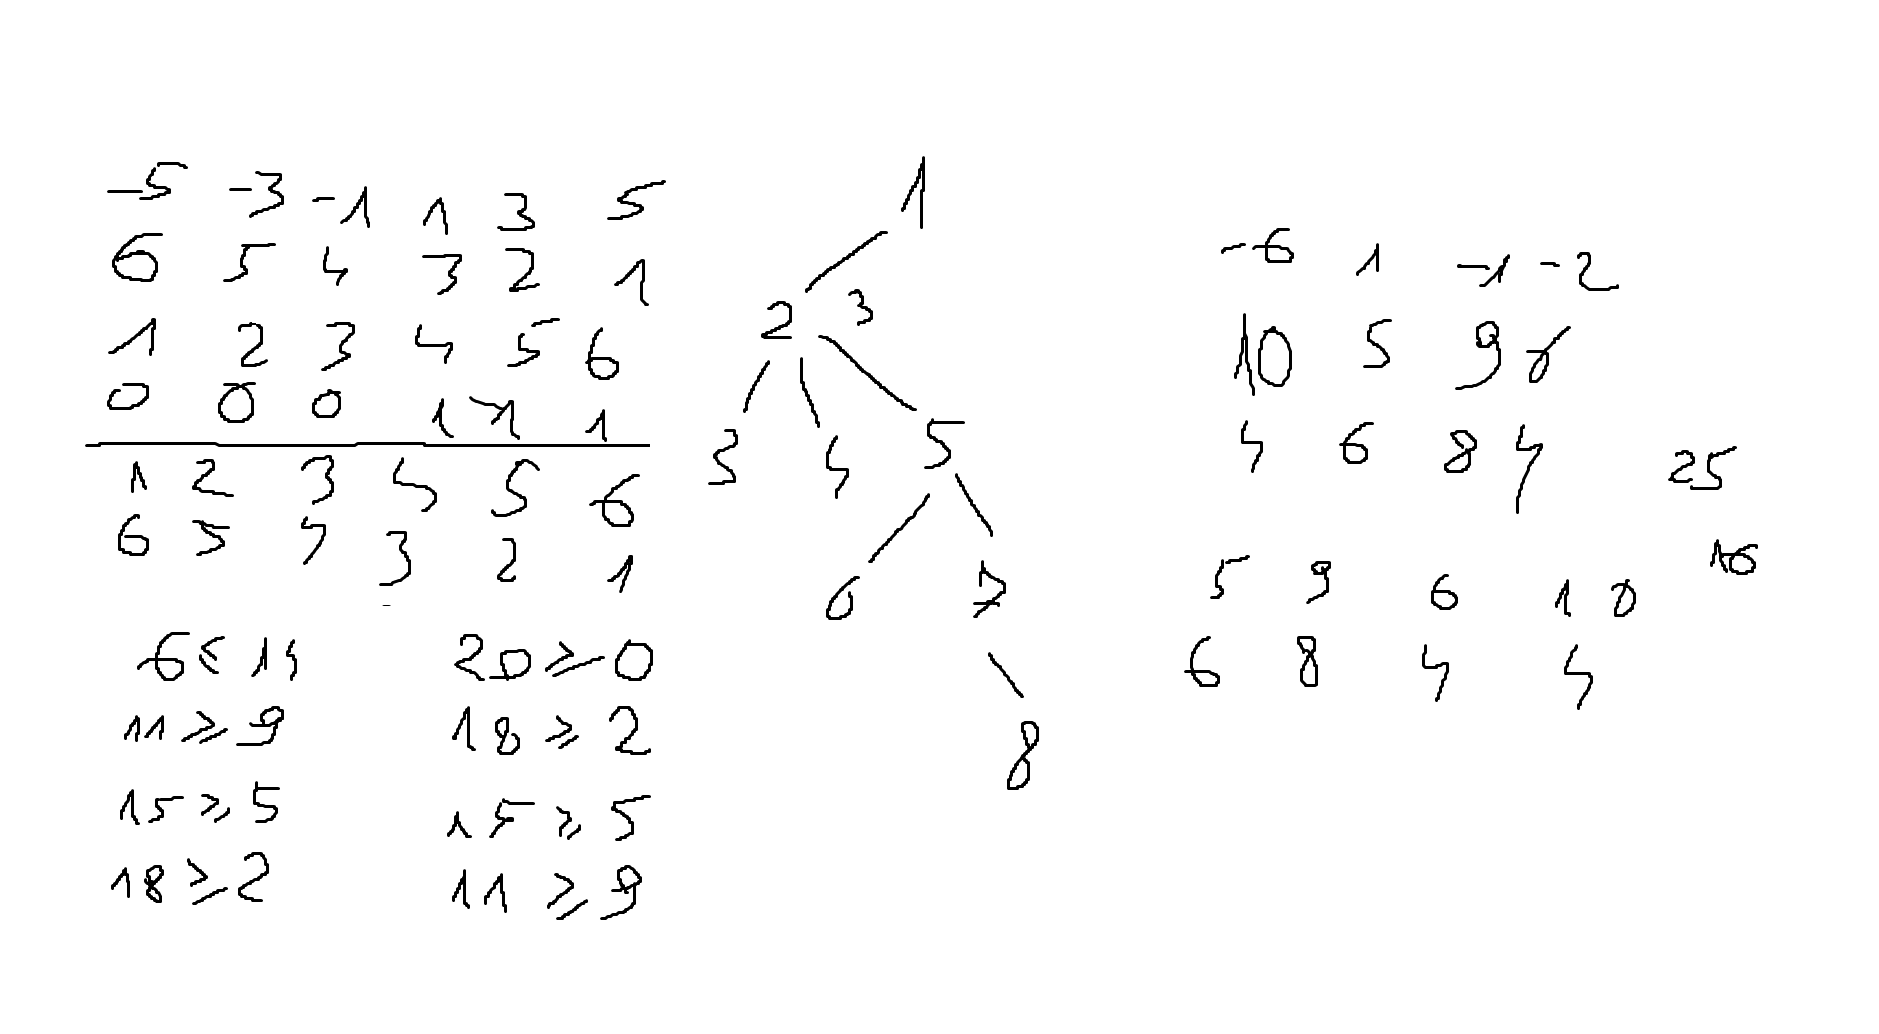 -5 -3 -1 1 3 5
6 5 4 3 2 1
1 2 3 4 5 6
0 0 0 1 1 1
1 2 3 4 5 6
6 5 4 3 2 1
6 ≤ 14
11 ≥ 9
15 ≥ 5
18 ≥ 2
20 ≥ 0
18 ≥ 2
15 ≥ 5
11 ≥ 9
1
2 3
3 4 5
6 7
8
-6 1 -1 -2
10 5 9 6
4 6 8 4
25
16
5 9 6 10
6 8 4 4